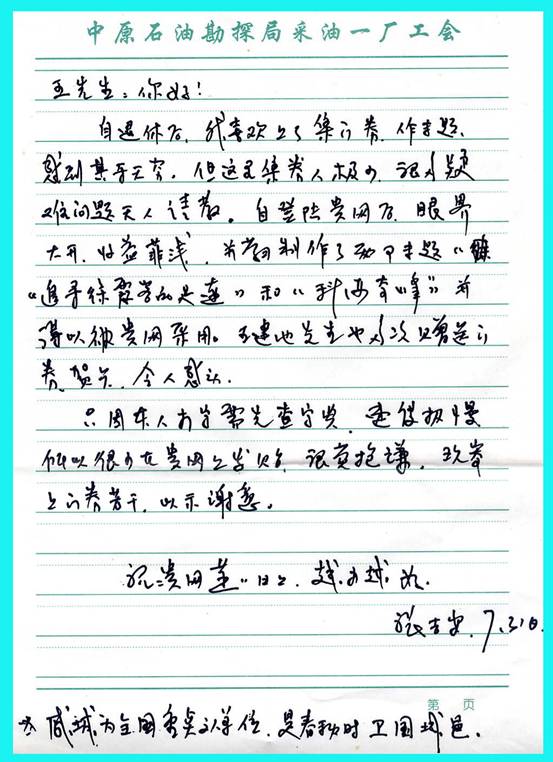 中原石油勘探局采油一厂工会
王先生：你好！
自退休后，我喜欢上了集门券、作专题，
感到其乐无穷。但这里集券人极少，很多疑
难问题无人请教。自登陆贵网后，眼界
大开，收益菲浅，并前制作了两个专题
“追寻徐霞客的足迹”和“科海奇峰”并
得以被贵网采用。王建也先生也多次赠送门
券、贺卡，令人感动。
只因本人打字需先查字典，速度极慢
所以很少在贵网上发贴，很莫抱歉，现奉
上门券若干，以示谢意。
祝：贵网蒸蒸日上，越办越好。
张吉安，7.31日
第 页
戚城为全国重点文单位，是春秋时卫国城邑。